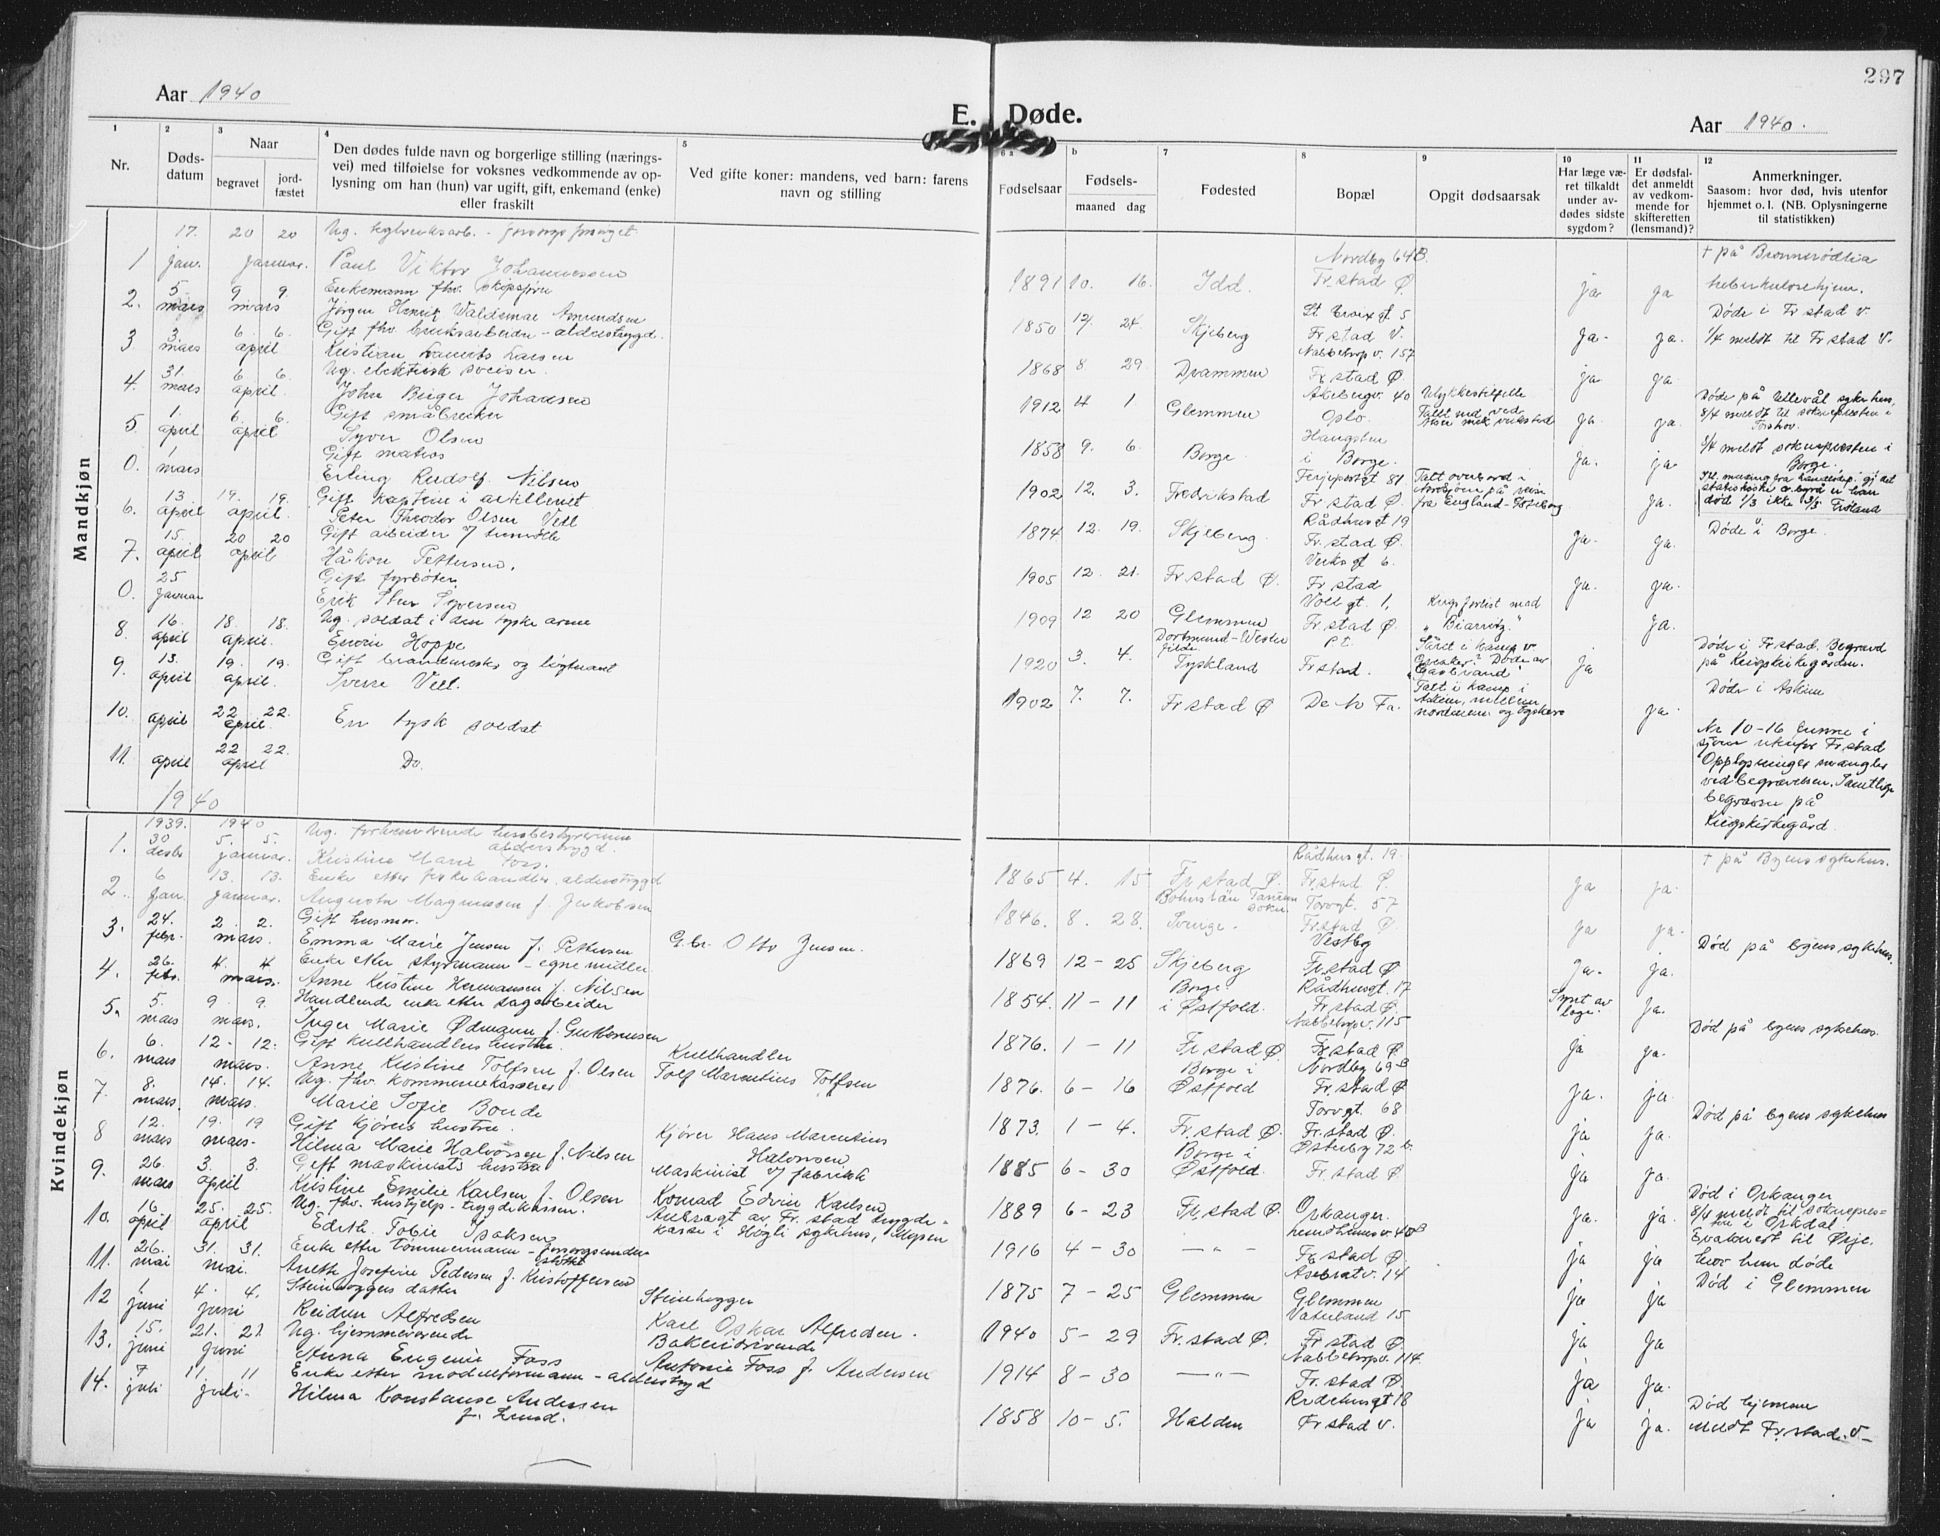 297
Aar 1940
E. Døde.
Aar 1940.
1 2 3 4 5 6 a b 7 8 9 10 11 12
Nr.
Døds-
datum
Naar
begravet
jord-
fæstet
Den dødes fulde navn og borgerlige stilling (nærings-
vei) med tilføielse for voksnes vedkommende av op-
lysning om han (hun) var ugift, gift, enkemand (enke)
eller fraskilt
Ved gifte koner: mandens, ved barn: farens
navn og stilling
Fødselsaar
Fødsels-
maaned dag
Fødested
Bopæl
Opgit dødsaarsak
Har læge væ-
ret tilkaldt
under av-
dødes sidste
sygdom?
Er dødsfal-
det anmeldt
av vedkom-
mende for
skifteretten
(lensmand)?
Anmerkninger.
Saasom: hvor død, hvis utenfor
hjemmet o. l. (NB. Oplysningerne
til statistikken)
Mandkjøn
1 17. jan. 20 20 januar. Ug.
Paul Viktor Johannessen
1891 10. 16. Idd. Nordby 64B. Fr.stad Ø. ja ja
2. 5 mars 9 9. mars Enkemann fhv.
Jørgen Henrik Valdemar Amundsen
1850 12. 24. Skjeberg St. Croix gt. 5 Fr.stad V. ja. ja. Døde i Fr stad V.
3 3. mars 6. 6. april Gift fhv. bruksarbeider - alderstrygd.
Kristian Larsen
1868 8. 29. Drammen Nabbetorp v. 157 Fr.stad Ø. ja ja 1/4 meldt til Fr stad V.
4. 31. mars 6 6. april Ug. elektrisk sveiser.
John Birger Johansen
1912 4 1 Glemmen Akebergv. 40 Oslo. Ulykkestilfelle ja. ja. Døde på Ullevål sykehus.
8/4 meldt til soknepresten i
Torshov.
5 1. april 6. 6. april. Gift småbruker
Syver Olsen
1858 9. 6. Borge. Haugsten i Borge. ja. ja. 9/4 meldt soknepresten i
Borge.
0. 1 mars Gift matros
Erling Rudolf Nilsen
1902 12. 3. Fredrikstad Ferjeportgt 81 Fr.stad Ø. Falt overbord i
Nordsjøen på reise
fra England - Göteborg ja.
6. 13 april 19. 19. april. Gift kaptein i artilleriet
Peter Theodor Olsen Vell
1874 12. 19. Skjeberg. Rådhusgt 19 Fr.stad Ø. ja. ja. Døde i Borge.
7. 15. april 20 20 april Gift arbeider
Håkon Pettersen.
1905 12. 21. Fr stad Ø. Verksgt 6. Fr stad ja. ja.
0. 25 januar Gift fyrbøter
Erik Sten Syversen
1909 12 20 Glemmen Voll gt. 1, Fr.stad Ø. Krigsforlist med
"Biarritz." ja.
8. 16. april 18. 18. april. Ug. soldat i den tyske arme
Erwin Hoppe
1920 3. 4. Dortmund - Wester
filde
Tyskland Fr stad. Såret i kamp v.
Døde av
"Gasbrand" ja Døde i Fr.stad. Begravd
på Krigskirkegården.
9. 13. april 19. 19. april. Gift brandmester og løytnant
Sverre Vell.
1902 7. 7. Fr stad Ø De No Fa. Falt i kamp i
Askim, mellem
nordmenn og tyskere ja. Døde i Askim
10. april 22 22. april. En tysk soldat
11. april 22 22. april Do.
Nr 10-16 funne i
sjøen utenfor Fr.stad
Opplysninger mangler
ved begravelsen. Samtlige
begravne på
Krigskirkegård.
1940
Kvindekjøn
1. 1939. 30 desbr 1940 5. 5. januar. Ug.
alderstrygd.
Kristine Marie Foss.
1865 4. 15 Fr stad Ø. Rådhusgt. 19. Fr.stad Ø. ja ja. † på Byens sykehus.
2. 6 jan. 13. 13. januar. Enke etter fiskehandler, alderstrygd
Augusta Magnussen f. Jakobsen
1846. 8. 28. Sverige. Torvgt. 57 Fr.stad Ø ja ja.
3. 24. febr. 2. 2. mars. Gift husmor.
Emma Marie Jensen f. Pettersen
Otto Jensen.
1869 12 - 25 Skjeberg Vestby Fr.stad Ø ja. ja. Død på byens sykehus.
4. 26. febr. 4. 4 mars. Enke etter styrmann - egne midler
Anne Kristine Hermansen f. Nilsen
1854. 11 - 11 Borge i Østfold. Rådhusgt. 17 Fr stad Ø. Synt av
lege. ja.
5. 5. mars 9. 9. mars. Handlende enke etter sagarbeider
Inger Marie Ødmann f. Guttormsen
1876. 1 - 11 Fr stad Ø. Nabbetorpv. 115 Fr stad Ø. ja ja. Død på byens sykehus.
6. 6. mars 12 - 12. mars. Gift kullhandlers hustru.
Anne Kristine Tolfsen f. Olsen
Kullhandler
Tolf Marentius Tolfsen
1876. 6 - 16 Borge i Østfold Nordby 69B Fr.stad Ø ja. ja.
7. 8. mars. 14. 14. mars. Ug. fhv. kommunekasserer
Marie Sofie Bonde
1873. 1 - 4. Fr.stad Ø. Torvgt. 68 Fr.stad Ø. ja ja. Død på byens sykehus
8 12. mars 19. 19 mars. Gift kjørers hustru.
Hilma Marie Halvorsen f. Nilsen
Kjører Hans Marentius
Halvorsen
1885 6 - 30 Borge i Østfold. Østerby 72 b. Fr.stad Ø ja ja.
9. 26. mars 3. 3. april Gift maskinists hustru
Kristine Emilie Karlsen f. Olsen
Maskinist v/ fabrikk
Konrad Edvin Karlsen
1889 6 - 23 Fr.stad Ø. Orkanger. ja. ja. Død i Orkanger
8/4 meldt til sokneprес-
ten i Orkdal.
10. 16. april 25. 25. april Ug. fhv. hushjelp - trygdekassen.
Edith Tobie Isaksen
Anbragt av Fr. stad trygde-
kasse i Høgli sykehus, Mysen
1916 4 - 30 — " — Fr.stad Ø ja ja Evakuert til Ørje.
hvor hun døde
11. 26. mai 31. 31. mai. Enke etter tømmermann -
Anette Josefine Pedersen f. Kristoffersen
1875 7 - 25 Glemmen Glemmen ja ja Død i Glemmen
12 1 juni 4. 4. juni Steinhoggers datter
Reidun Alfredsen
Steinhogger
Karl Oskar Alfredsen.
1940 5 - 29 Fr.stad Ø. Vaterland 15 Fr stad Ø. ja ja.
13. 15. juni 21. 21. juni Ug. hjemmeværende
Anna Eugenie Foss
Bakeridrivende
Antonie Foss f. Andersen
1914 8 - 30 — " — Nabbetorpv. 114. Fr. stad Ø. ja ja.
14. 7 juli 11 11 juli. Enke etter modellformann - alderstrygd
Hilma Konstanse Andersen
f. Lund.
1858 10 - 5. Halden Fr stad V. ja ja. Død hjemme
Meldt Fr.stad. V -